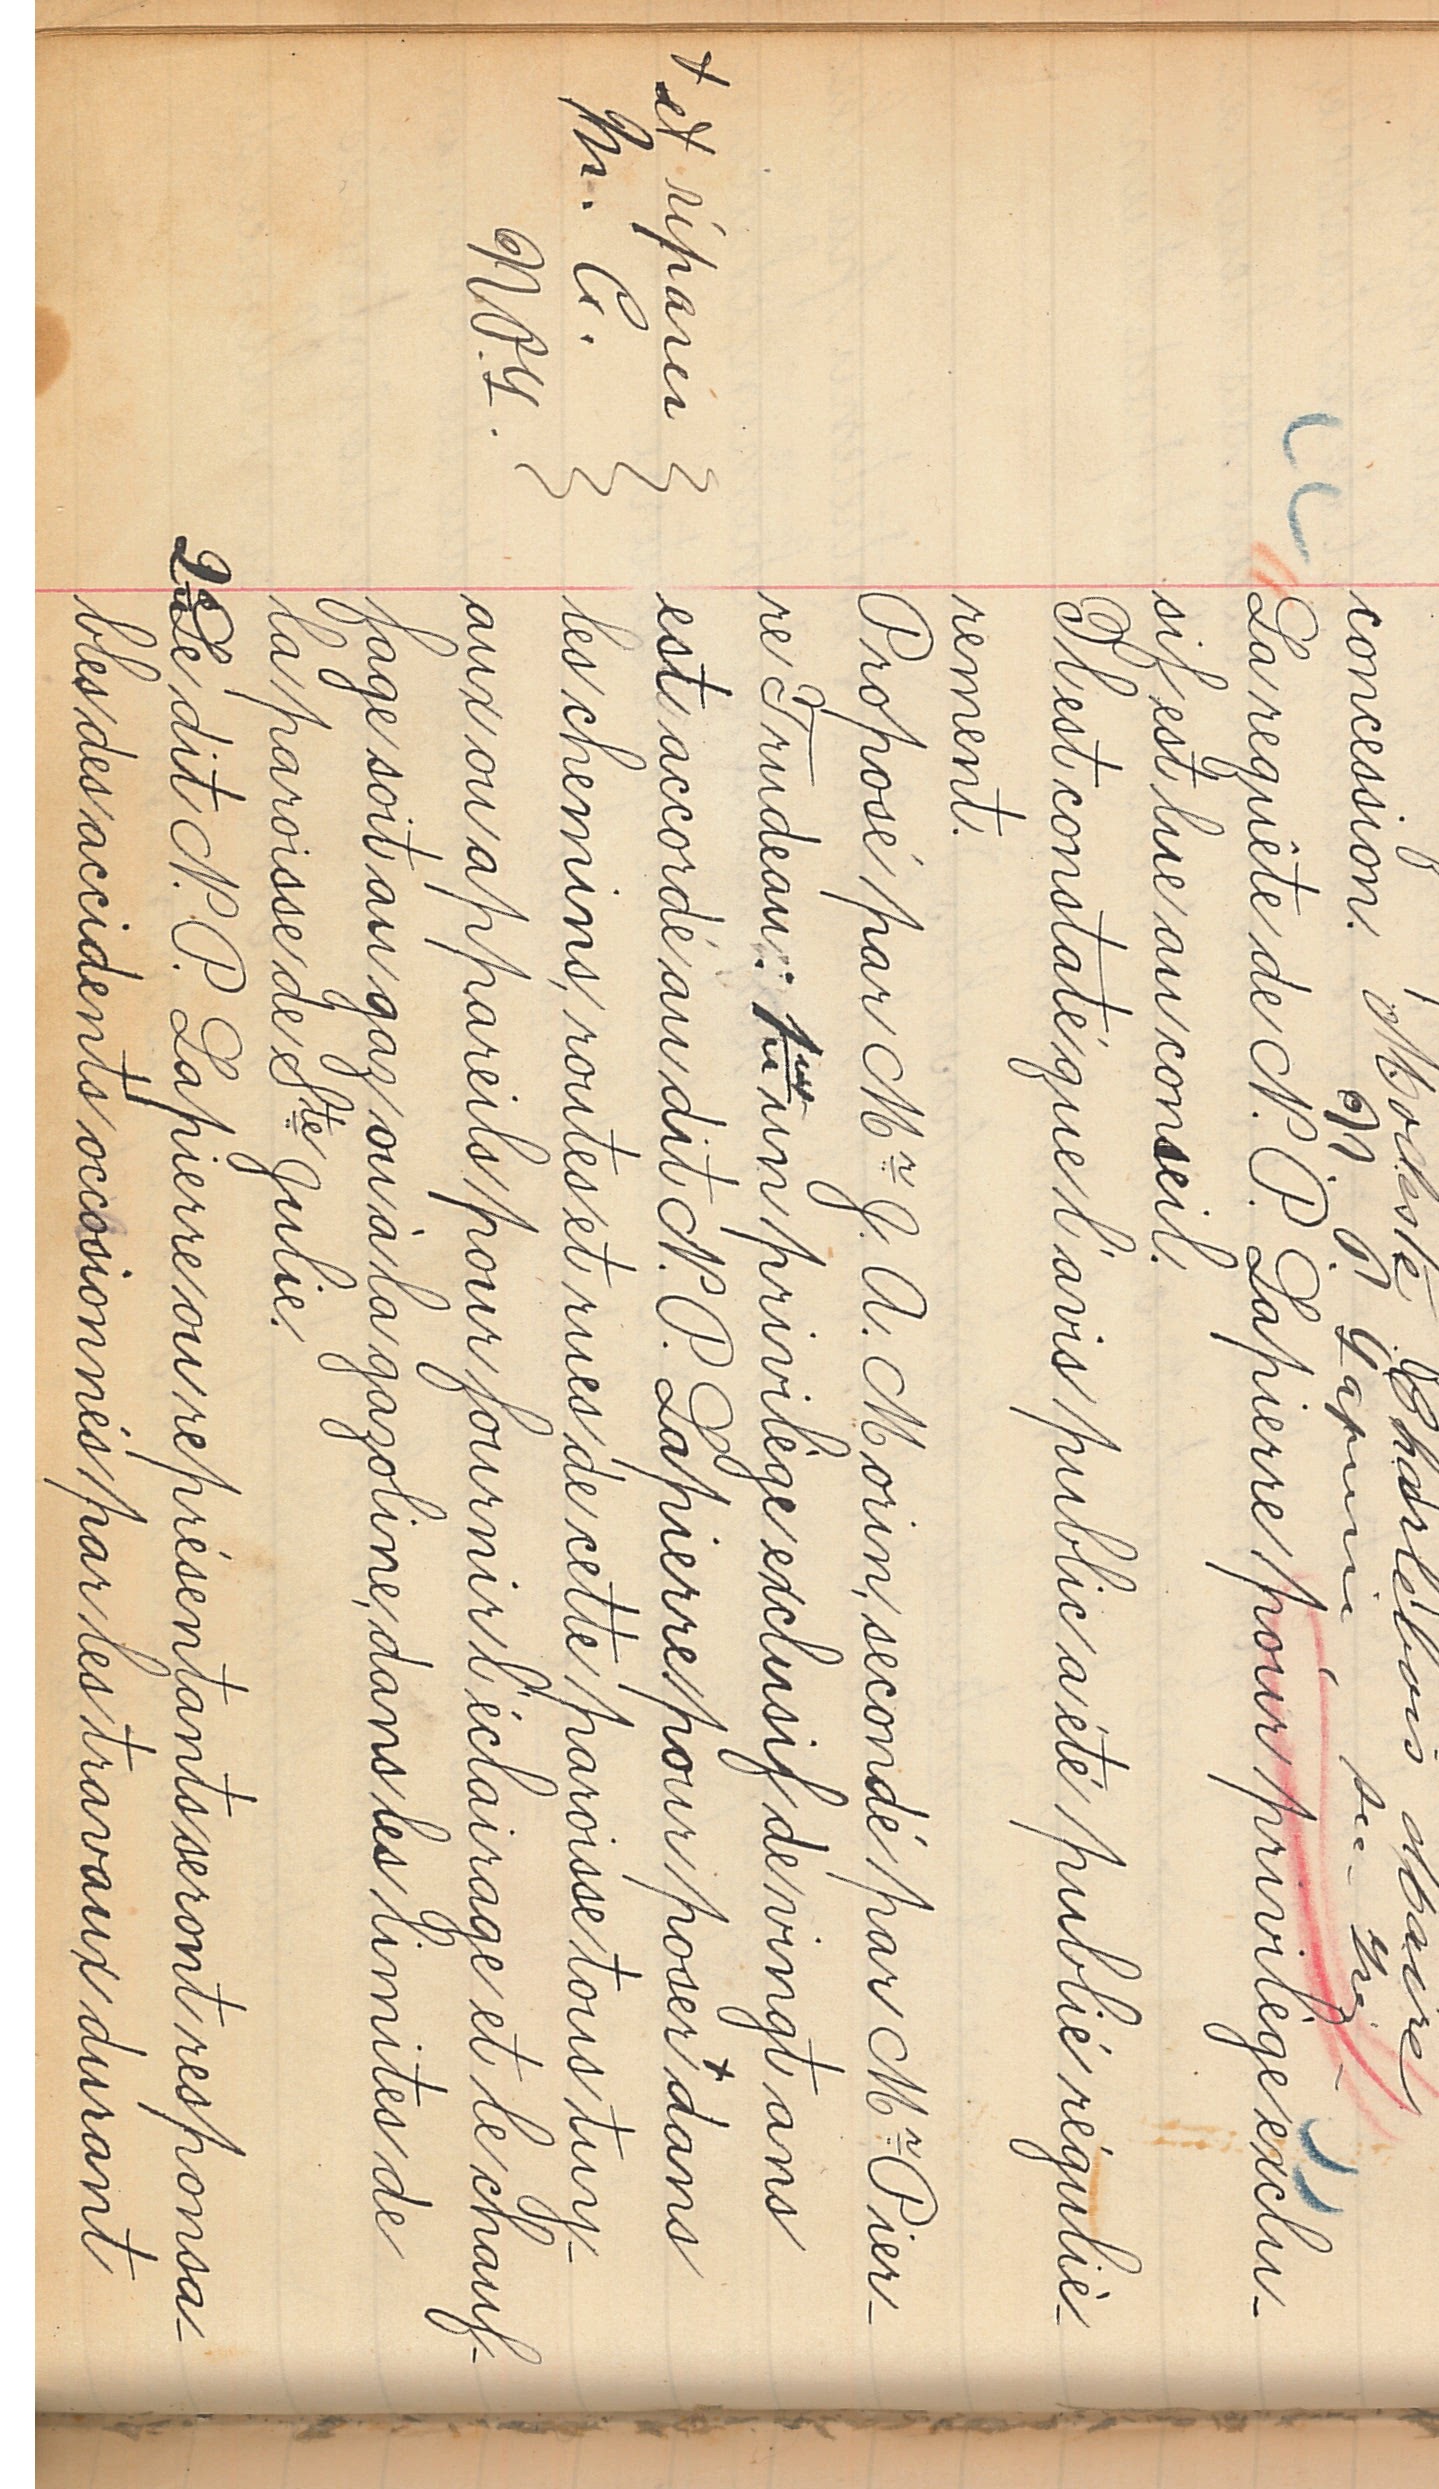 concession. Modeste Charlebois Maire
N. P. Lapierre sec-
La requête de N. P. Lapierre pour privilège exclu-
sif est lue au conseil.
Il est constaté que l'avis public a été publié réguliè-
rement.
Proposé par Mr J. A. Morin, secondé par Mr Pier-
re Trudeau: 1nt un privilège exclusif de vingt ans
+ et réparer
est accordé au dit N. P. Lapierre pour poser + dans
M. C.
les chemins, routes et rues de cette paroisse tous tuy-
N.P.L.
aux ou appareils pour fournir l'éclairage et le chauf-
fage soit au gaz ou à la gazoline, dans les limites de
la paroisse de Ste Julie.
2e Le dit N. P. Lapierre ou représentants seront responsa-
bles des accidents occosionnés par les travaux durant